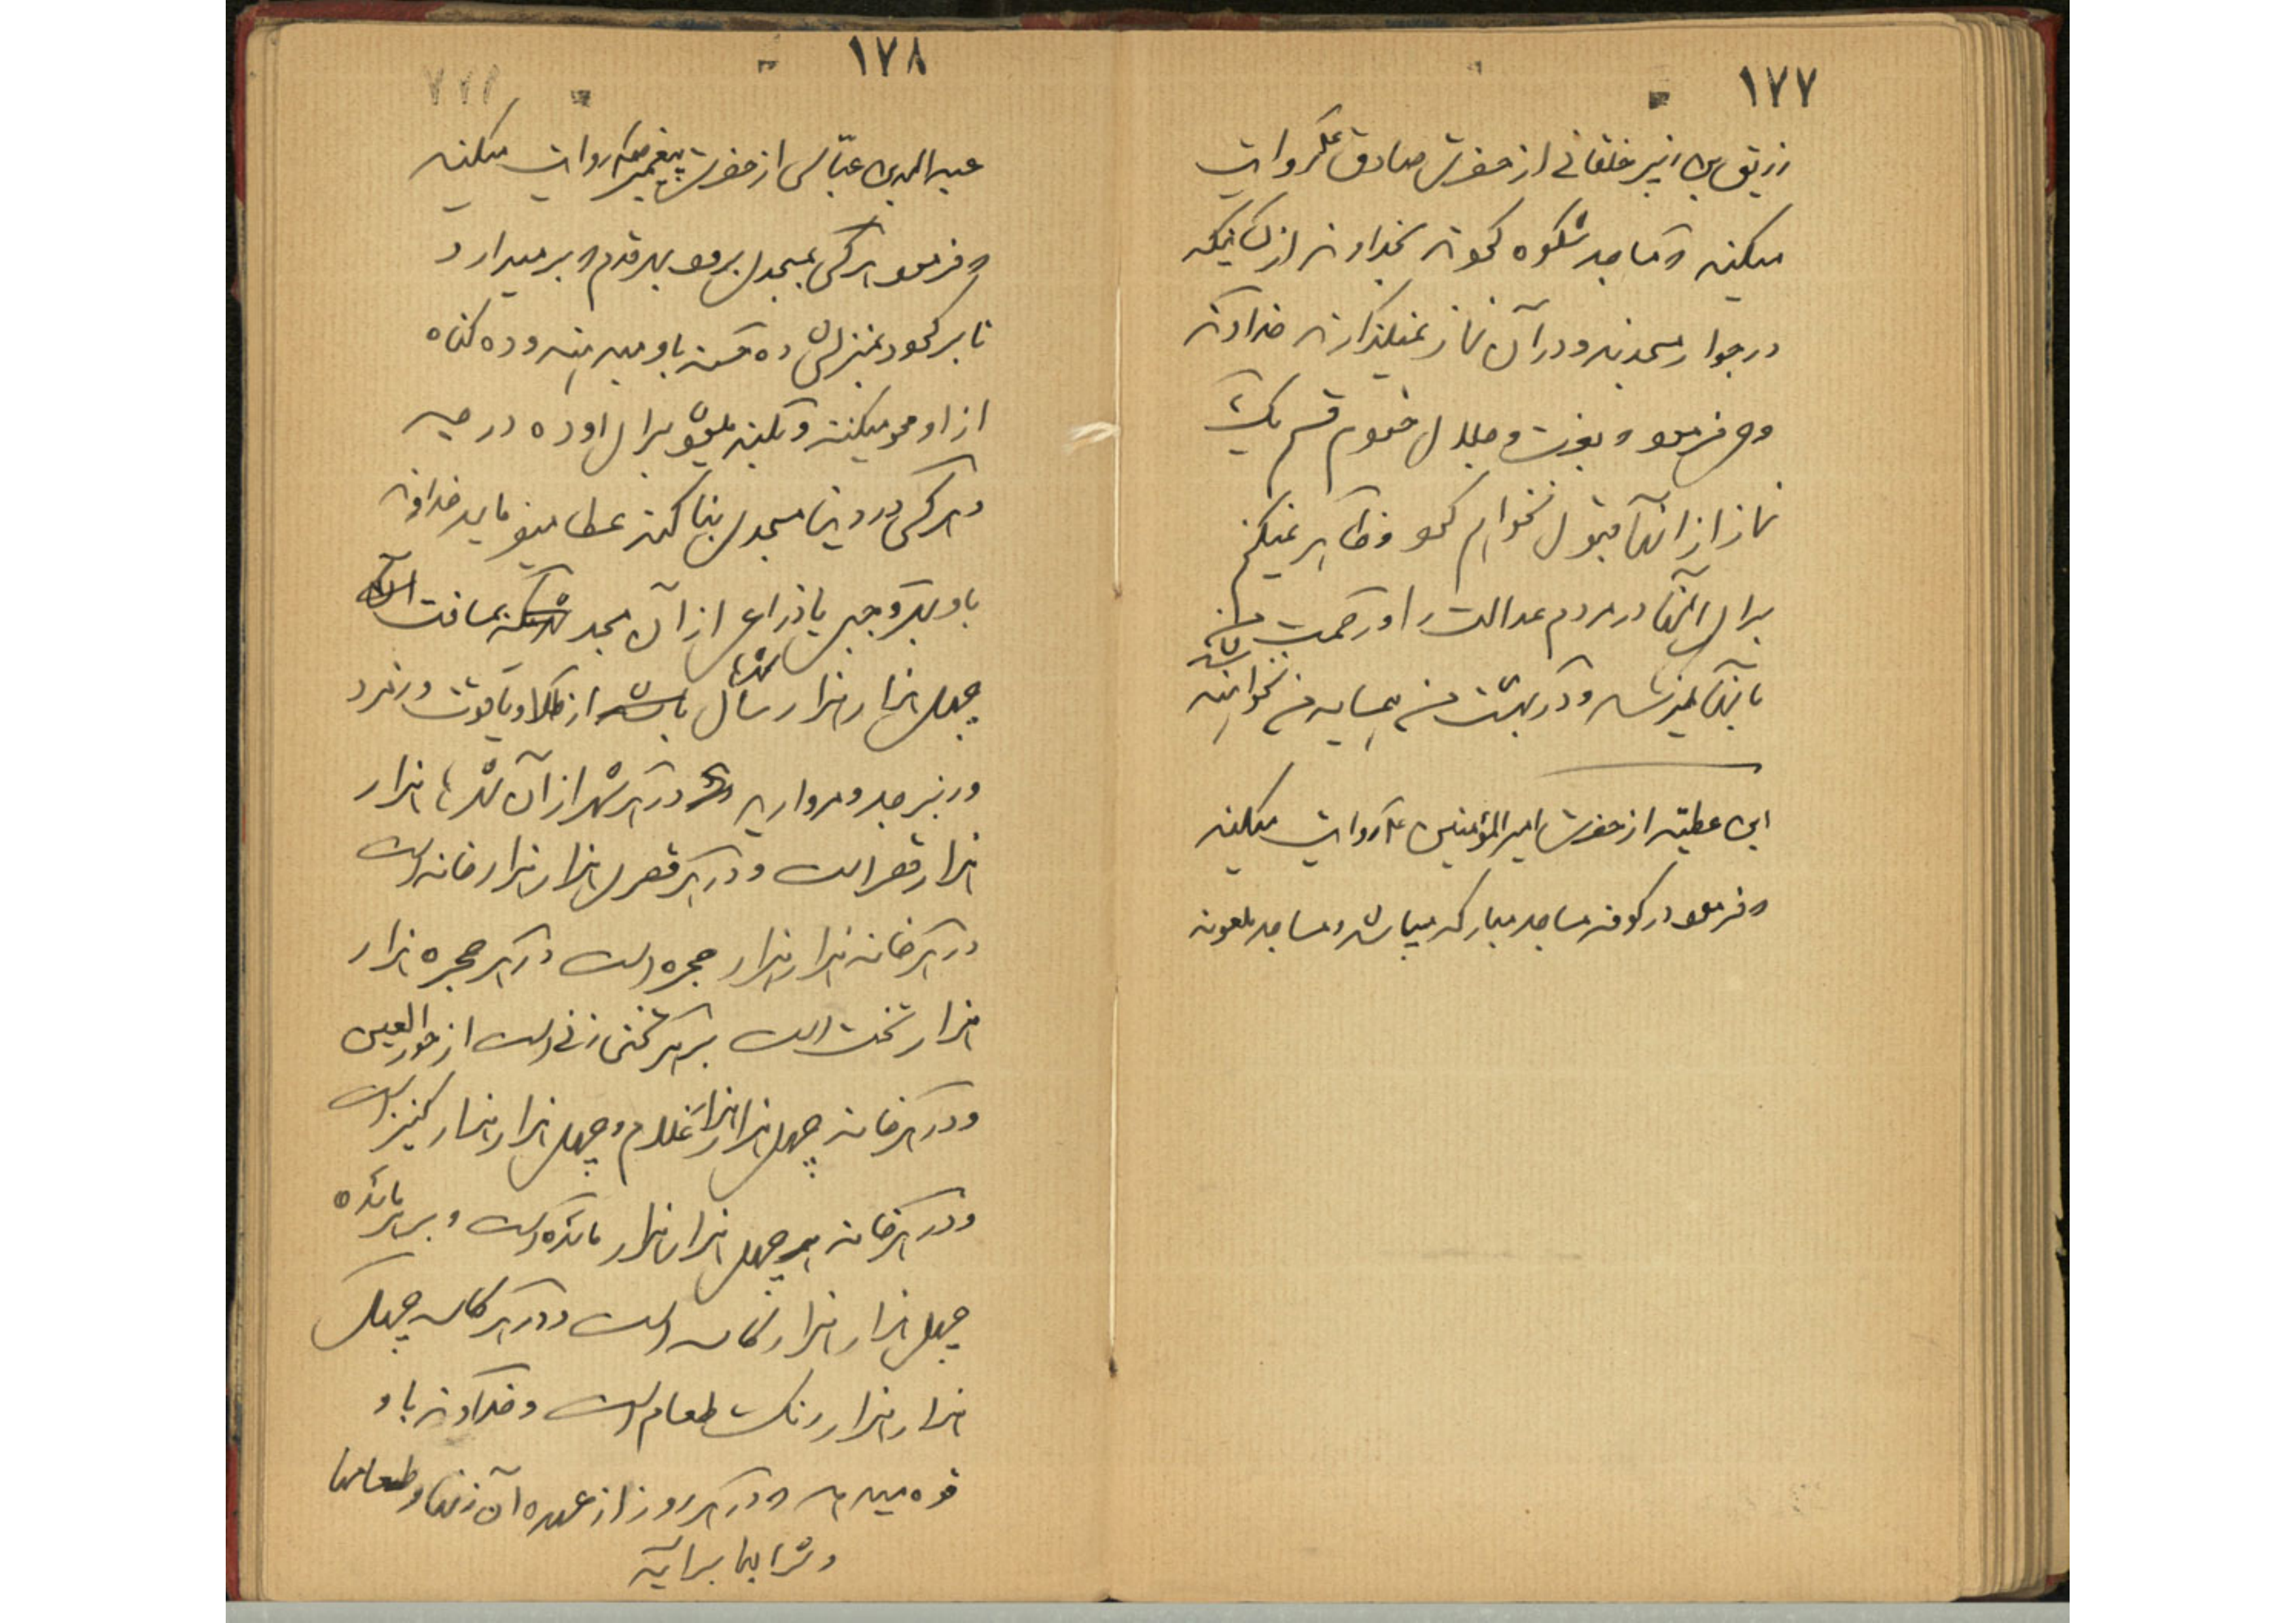 ۱۷۷
زریق بن زبیر خلقانی از حضرت صادق ع روایت
میکند که مساجد شکوه کردند بخداوند از کسانیکه
در جوار مسجدند و در آن نماز نمیگذارند خداوند
وحی فرمود که بعزت و جلال خودم قسم یک
نماز از آنها قبول نخواهم کرد و ظاهر نمیکنم
برای آنها در مردم عدالت را و رحمت من
بآنها نمیرسد و در بهشت من همسایه من نخواهند
شد
ابن عطیه از حضرت امیرالمؤمنین ع روایت میکند
که فرمود در کوفه مساجد مبارکه میباشد و مساجد ملعونه
۱۷۸
عبدالله بن عباس از حضرت پیغمبر ص روایت میکند
که فرمود هر کس بمسجدی برود بهر قدم که بر میدارد
تا برگردد بمنزلش ده حسنه باو میدهند و ده گناه
از او محو میکنند و بلند میشود برای او ده درجه
و هر کس در دنیا مسجدی بنا کند عطا میفرماید خداوند
باو بهر وجبی یا ذراعی از آن مسجد بمسافت
چهل هزار هزار سال شهرها از طلا و یاقوت و زمرد
و زبرجد و مروارید در هر شهر از آن شهرها هزار
هزار قصر است و در هر قصری هزار هزار خانه است
در هر خانه هزار هزار حجره است در هر حجره هزار
هزار تخت است بر هر تختی زنی است از حور العین
و در هر خانه چهل هزار هزار غلام و چهل هزار هزار کنیز است
و در هر خانه چهل هزار هزار مائده است و بر هر مائده
چهل هزار هزار کاسه است و در هر کاسه چهل
هزار هزار رنگ طعام است و خداوند باو
قوه میدهد که در هر روز از عهده آن زنها و طعامها
و شرابها برآید